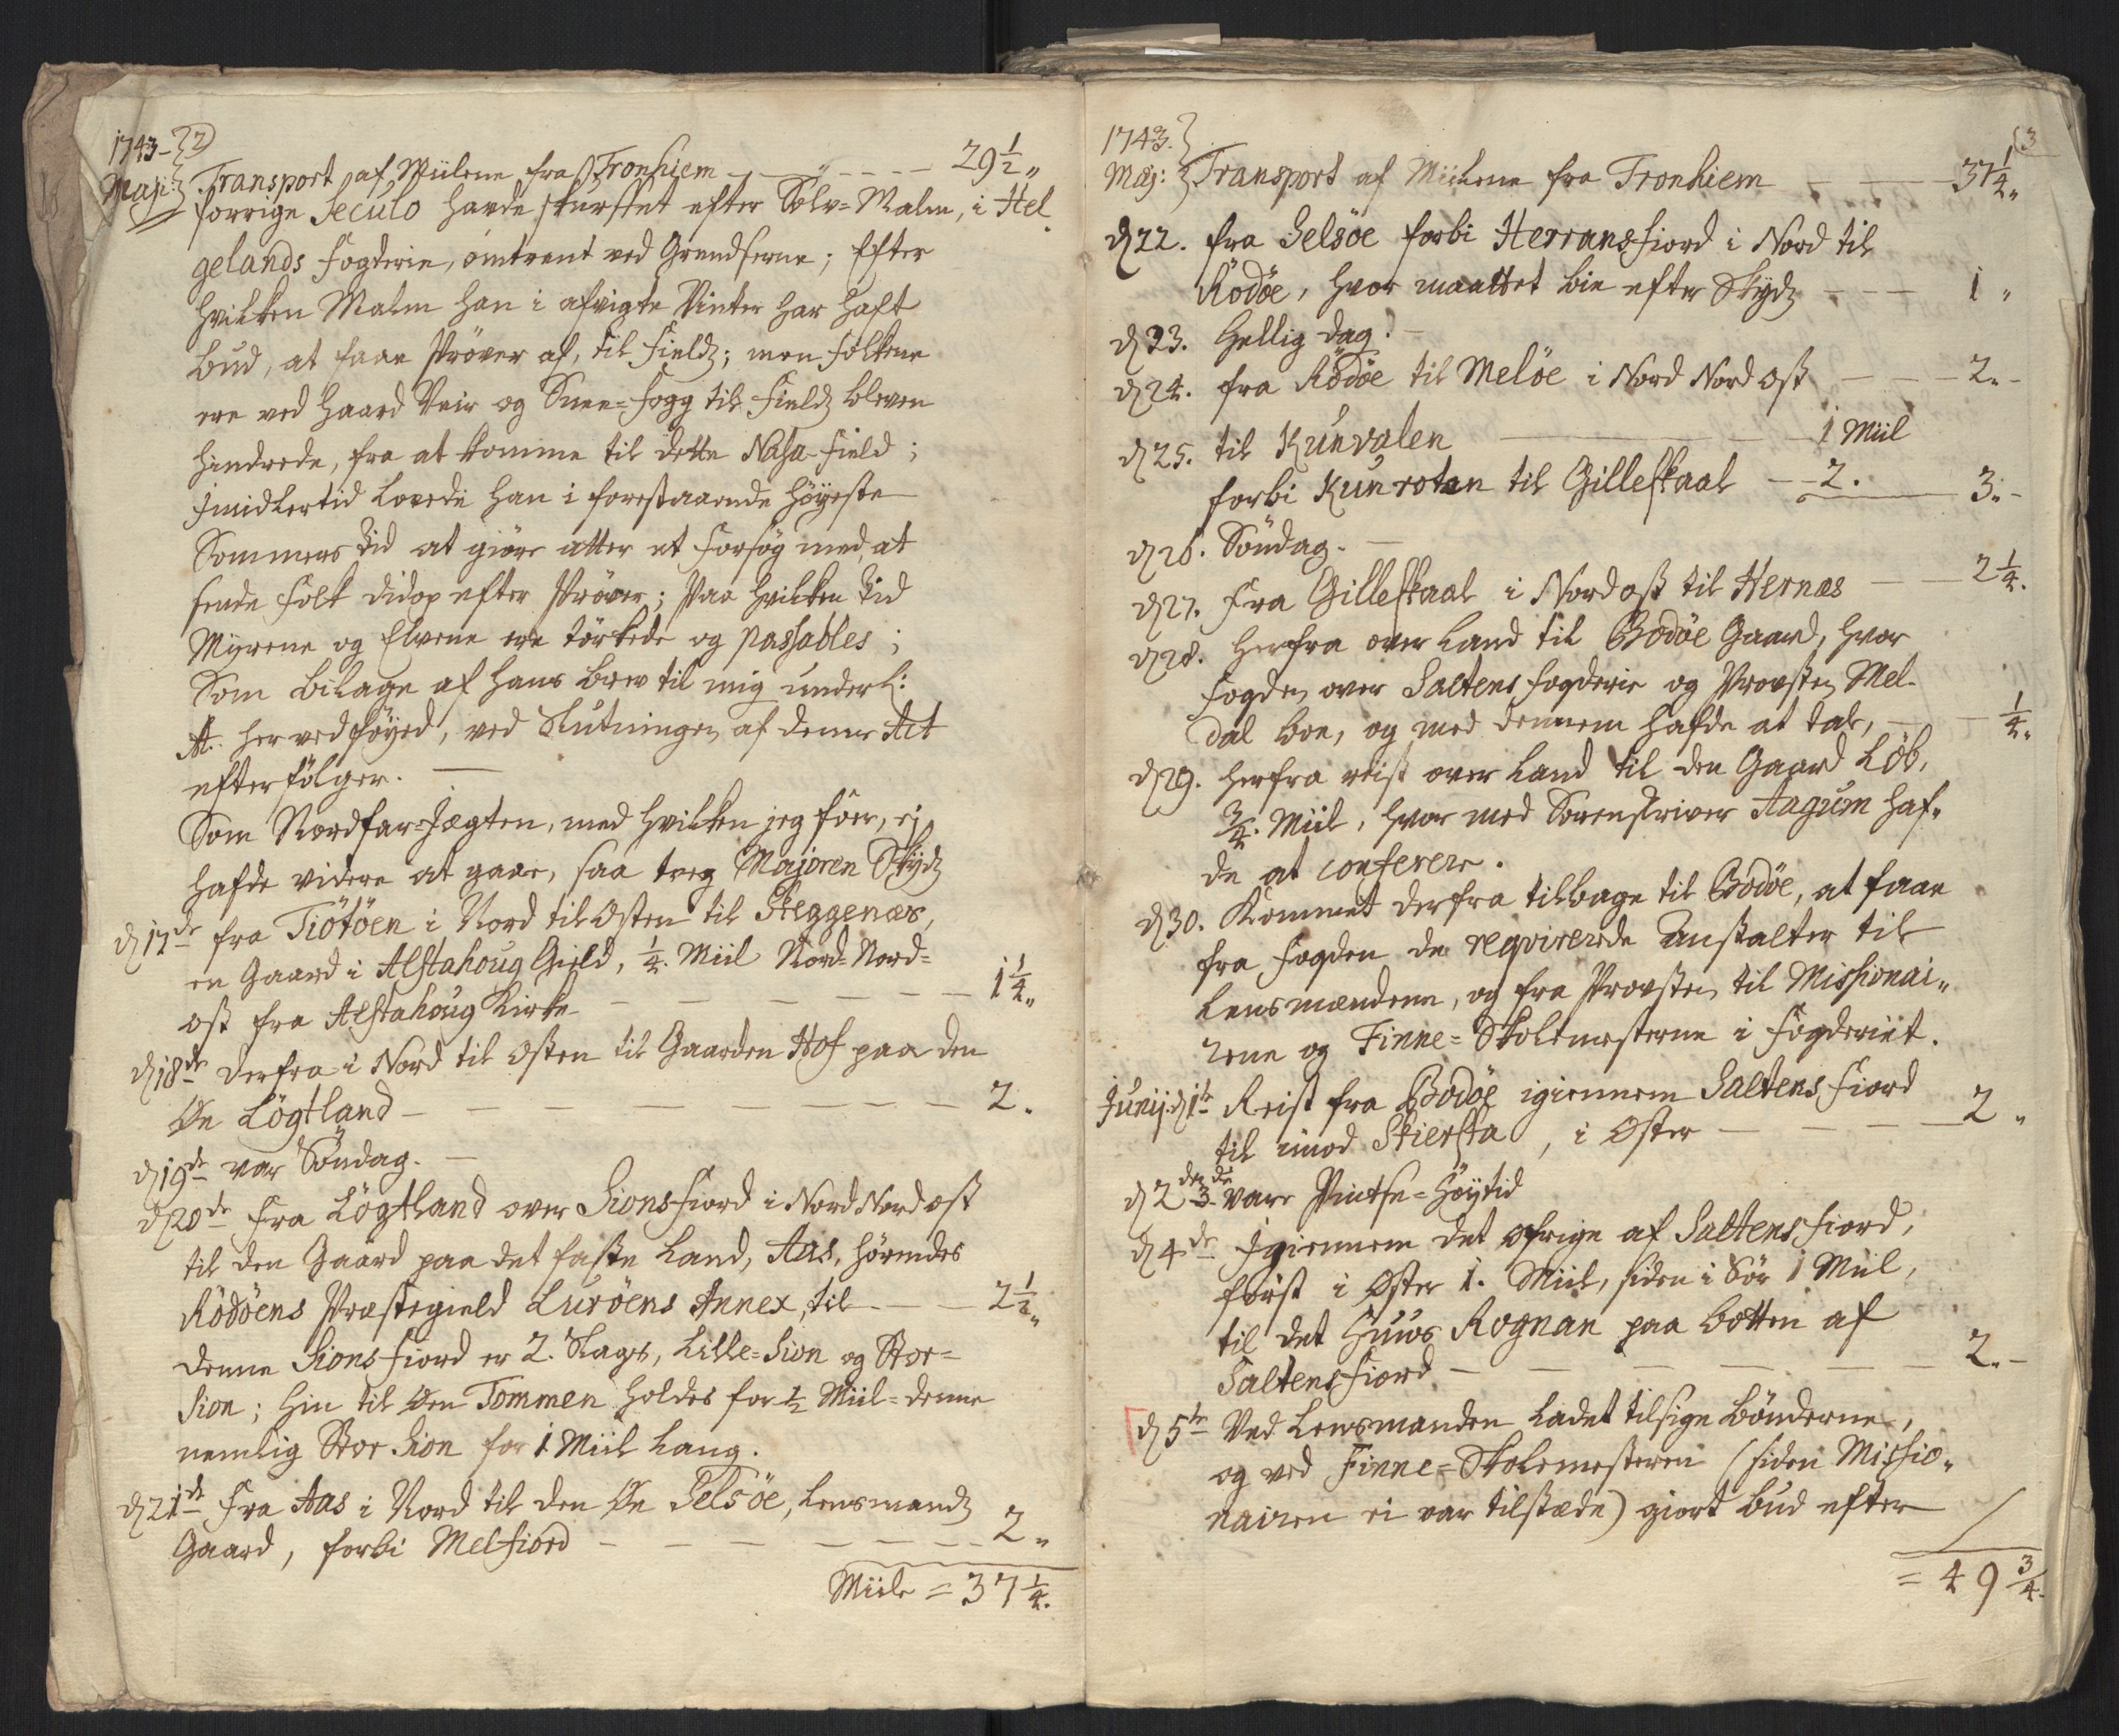 1743. 2
Maji: Transport af Miilene fra Tronhiem 29 1/2
forrige Seculo hafde skurffet efter Sølv-Malm, i Hel
gelands Fogderie, omtrent ved Grendserne; Efter
hvilken Malm han i afvigte Vinter har haft
bud, at faae Prøver af, til Fields; men folkene
ere ved haard Veir og Snee-Fogg til Fields bleven
hindrede, fra at komme til dette Nasa-Field;
Imidlertid lovede han i forestaaende høyeste
Sommers Tid at giøre atter et Forsøg med, at
sende Folk didop efter Prøver; Paa hvilken Tid
Myrene og Elvene ere tørkede og passables;
Som bilage af hans brev til mig under L:
A. her vedføyed, ved Slutningen af denne Act
efterfølger.
Som Nordfar-Jægten, med hvilken jeg foer, ej
hafde videre at gaae, saa tog Majoren Skyds
d 17de fra Tiötöen i Nord til Osten til Skeggenæs,
en Gaard i Alstahoug Gield, 1/4. Miil Nord-Nord-
ost fra Alstahoug Kirke 1 1/4
d 18de derfra i Nord til Osten til Gaarden Hof paa den
Øe Lögtland 2.
d 19de var Søndag.
d 20de Fra Lögtland over Sionsfiord i Nord Nordost
til den Gaard paa det faste Land, Aas, hørendes
Rödöens Præstegield Luröens Annex, til 2 1/2
denne Sionsfiord er 2. Slags, Lille-Sion og Stor-
Sion; hin til Øen Tommen holdes for 1/2 Miil - denne
nemlig Stor Sion for 1 Miil lang.
d 21de Fra Aas i Nord til den Øe Selsöe, Lensmands
Gaard, forbi Melfiord 2
Miile = 37 1/4.
1743. 3
Maj: Transport af Miilene fra Tronhiem 37 1/4
d 22. fra Selsöe forbi Herransfiord i Nord til
Rödöe, hvor maattet bie efter Skyds 1
d 23. Hellig dag.
d 24. fra Rödöe til Melöe i Nord Nordost 2.
d 25. til Kunvalen 1 Miil
forbi Kunrotan til Gilleskaal 2. 3.
d 26. Söndag.
d 27. Fra Gilleskaal i Nordost til Hernæs 2 1/4.
d 28. Herfra over Land til Bodöe Gaard, hvor
Fogden over Saltens Fogderie og Provsten Mel-
dal boe, og med dennem hafde at tale, 1/4.
d 29. herfra reist over Land til den Gaard Löb,
3/4. Miil, hvor med Sorenskriver Aagum haf-
de at conferere.
d 30. Kommet derfra tilbage til Bodöe, at faae
fra Fogden de reqvirerede Anstalter til
Lensmændene, og fra Provsten til Missionai-
rene og Finne-Skolemesterne i Fogderiet.
Junij d 1te Reist fra Bodöe igiennem Saltens Fiord
til imod Skiersta, i Oster 2
d 2den 3de vare Pintse-Høytid
d 4de Igiennem det øfrige af Saltens fiord,
først i Øster 1. Miil, siden i Sör 1 Miil,
til det Huus Rognan paa botten af
Saltens Fiord 2.
d 5te Ved Lensmanden ladet tilsige bönderne,
og ved Finne-Skolemesteren (siden Missio-
nairen ei var tilstæde) giort bud efter
= 49 3/4.